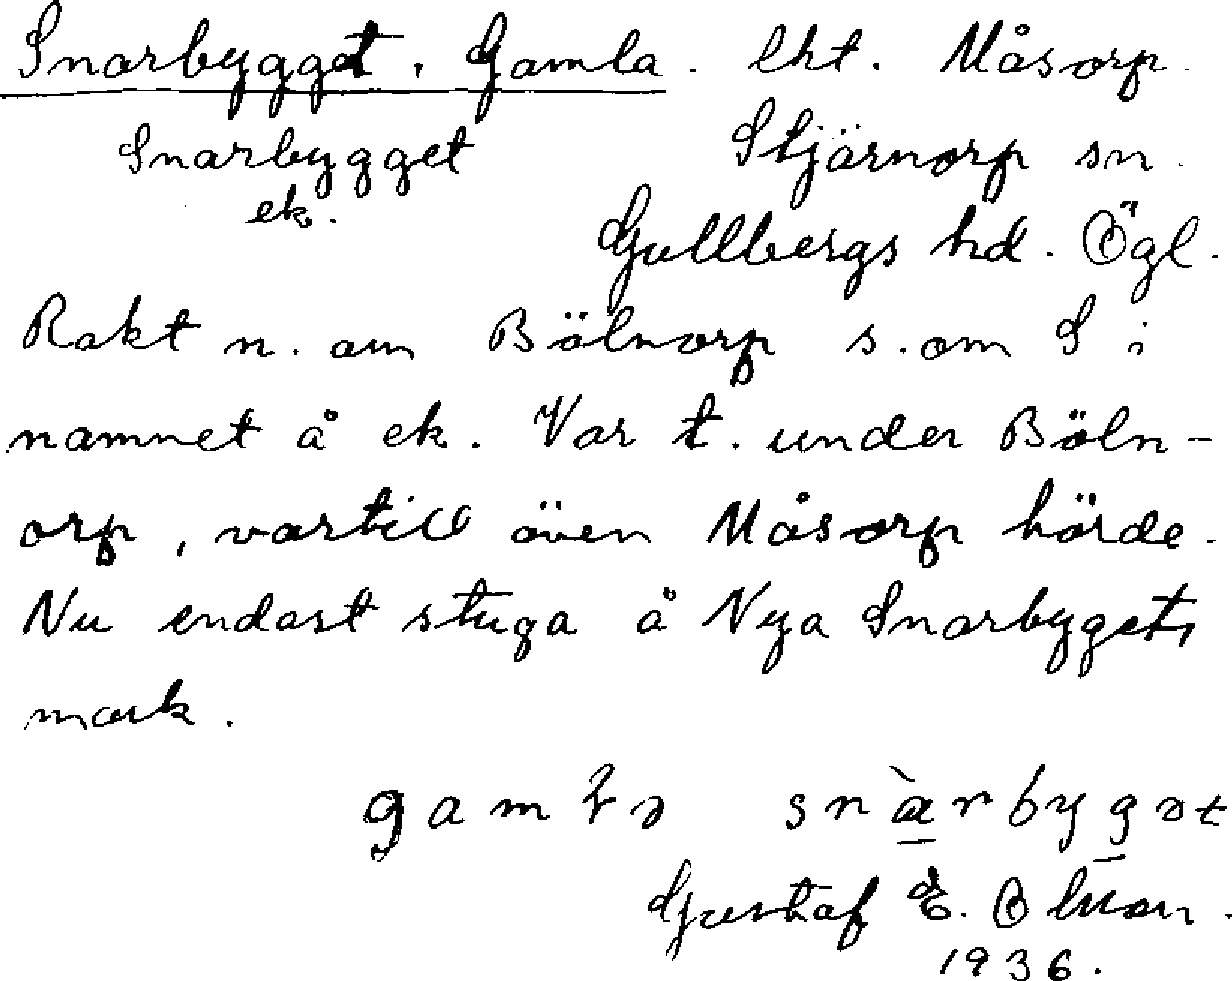 Snarbygget, Gamla. lht. Måsorp.
Snarbygget Stjärnorp sn.
ek.
Gullbergs hd. Ögl.
Rakt n. om Bölnorp s. om S i
namnet å ek. Var t. under Böln-
orp, vartill även Måsorp hörde.
Nu endast stuga å Nya Snarbygets
mark.
gamɫə snàrbygət
Gustaf E.
1936.